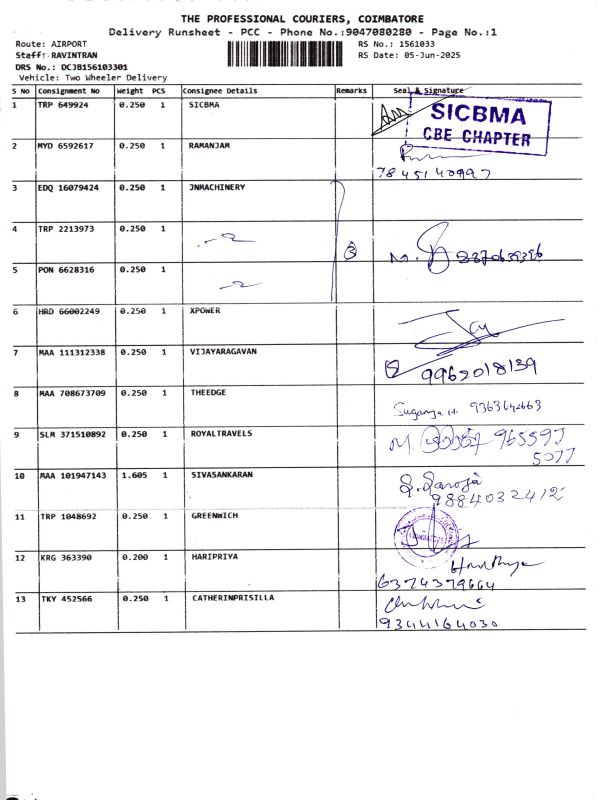 THE PROFESSIONAL COURIERS, COIMBATORE
Delivery Runsheet - PCC - Phone No.:9047080280 - Page No.:1
Route: AIRPORT RS No.: 1561033
Staff: RAVINTRAN RS Date: 05-Jun-2025
DRS No.: DCJB156103301
Vehicle: Two Wheeler Delivery
S No Consignment No Weight PCS Consignee Details Remarks Seal & Signature
1 TRP 649924 0.250 1 SICBMA
SICBMA
CBE CHAPTER
2 MYD 6592617 0.250 1 RAMANJAM
7845140997
3 EDQ 16079424 0.250 1 JNMACHINERY
4 TRP 2213973 0.250 1 3 M.
5 PON 6628316 0.250 1
6 HRD 66002249 0.250 1 XPOWER
7 MAA 111312338 0.250 1 VIJAYARAGAVAN
9962018139
8 MAA 708673709 0.250 1 THEEDGE
Suganya H. 9363642663
9 SLM 371510892 0.250 1 ROYALTRAVELS M. 965597
5077
10 MAA 101947143 1.605 1 SIVASANKARAN S. Saroja
9884032412
11 TRP 1048692 0.250 1 GREENWICH
12 KRG 363390 0.200 1 HARIPRIYA Haripriya
6374379664
13 TKY 452566 0.250 1 CATHERINPRISILLA
9344164030